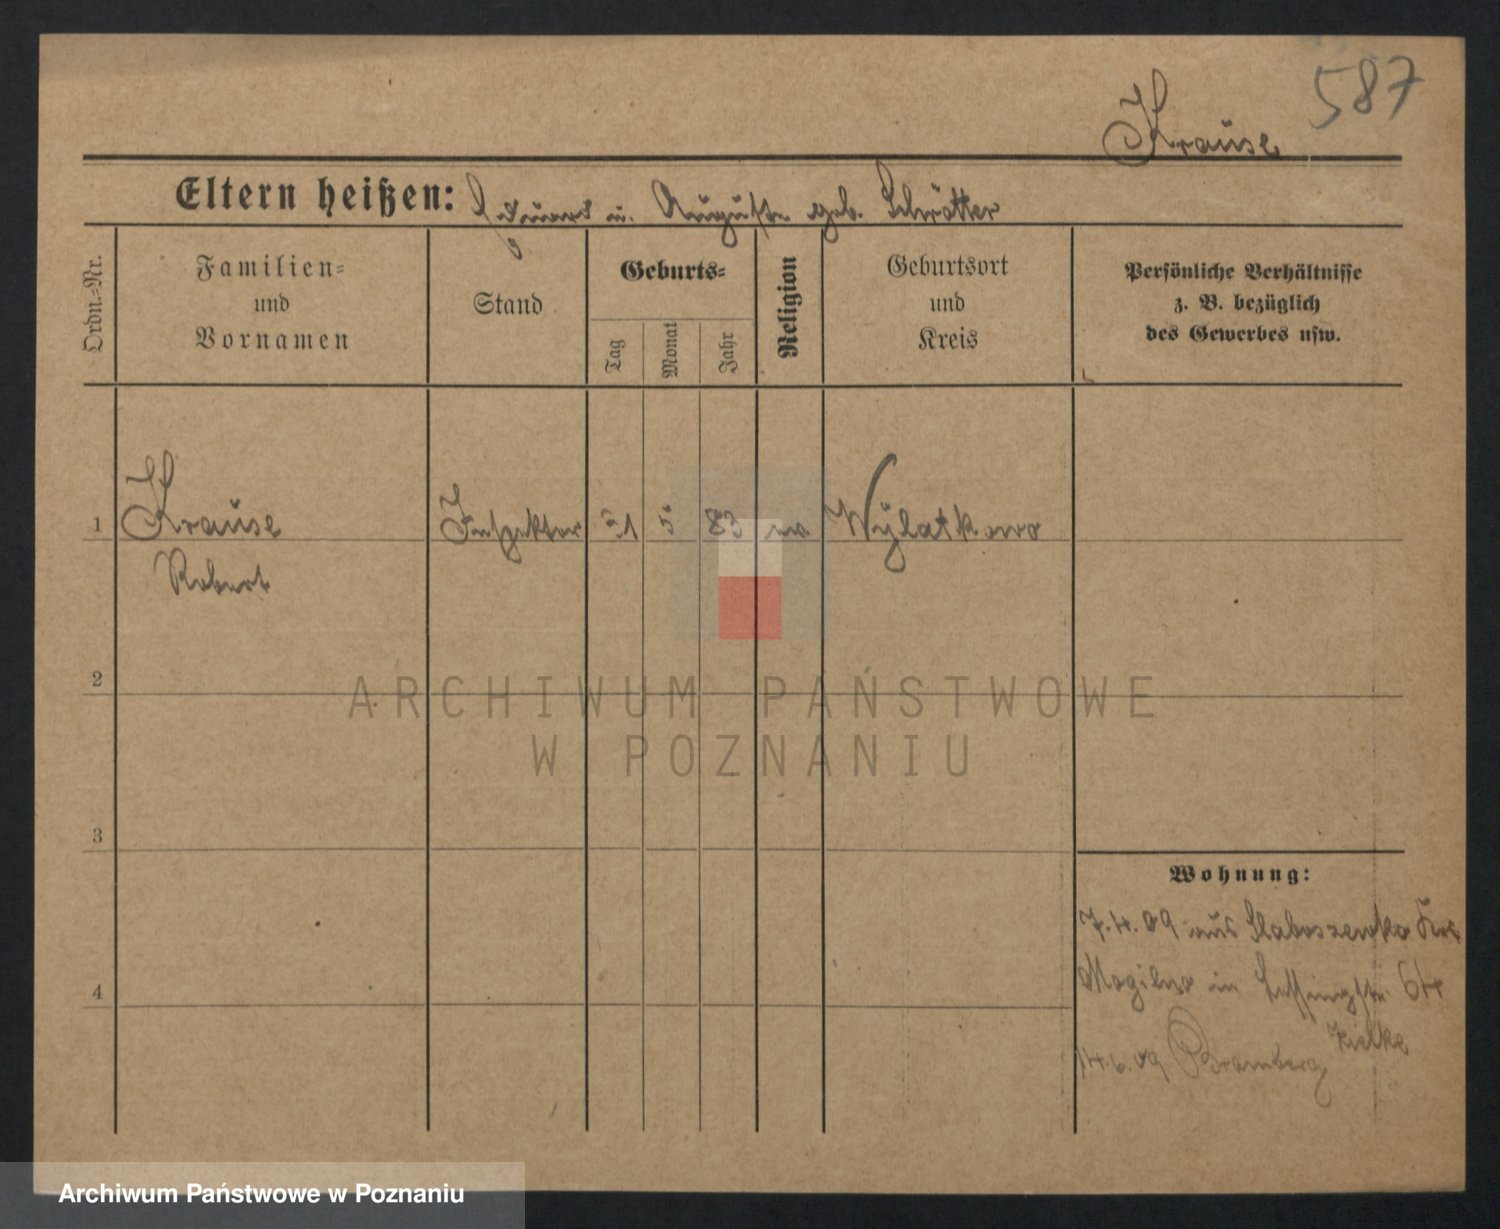 587
Krause
Eltern heißen: Eduard u. Auguste geb. Schrötter
Ordn.-Nr.
Familien-
und
Vornamen
Stand
Geburts-
Tag
Monat
Jahr
Religion
Geburtsort
und
Kreis
Persönliche Verhältnisse
z. B. bezüglich
des Gewerbes usw.
1 Krause Inspektor 21 5 83 ev. Wylatkowo
Robert
2
3
4
Wohnung:
7.4.09 aus Slaboszewko Krs
Mogilno in Lessingstr 64
Zielke
14.6.09 Bromberg
ARCHIWUM PAŃSTWOWE
W POZNANIU
Archiwum Państwowe w Poznaniu